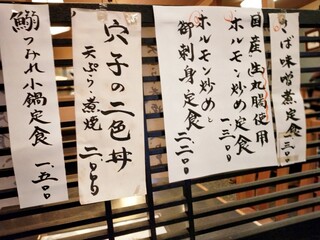 さば味噌煮定食
一、三〇〇
国産生丸腸使用
ホルモン炒め定食
一、三〇〇
ホルモン炒めと
御刺身定食
二、二〇〇
穴子の二色丼
天ぷら・煮焼
二、〇〇〇
鰯つみれ小鍋定食
一、五〇〇